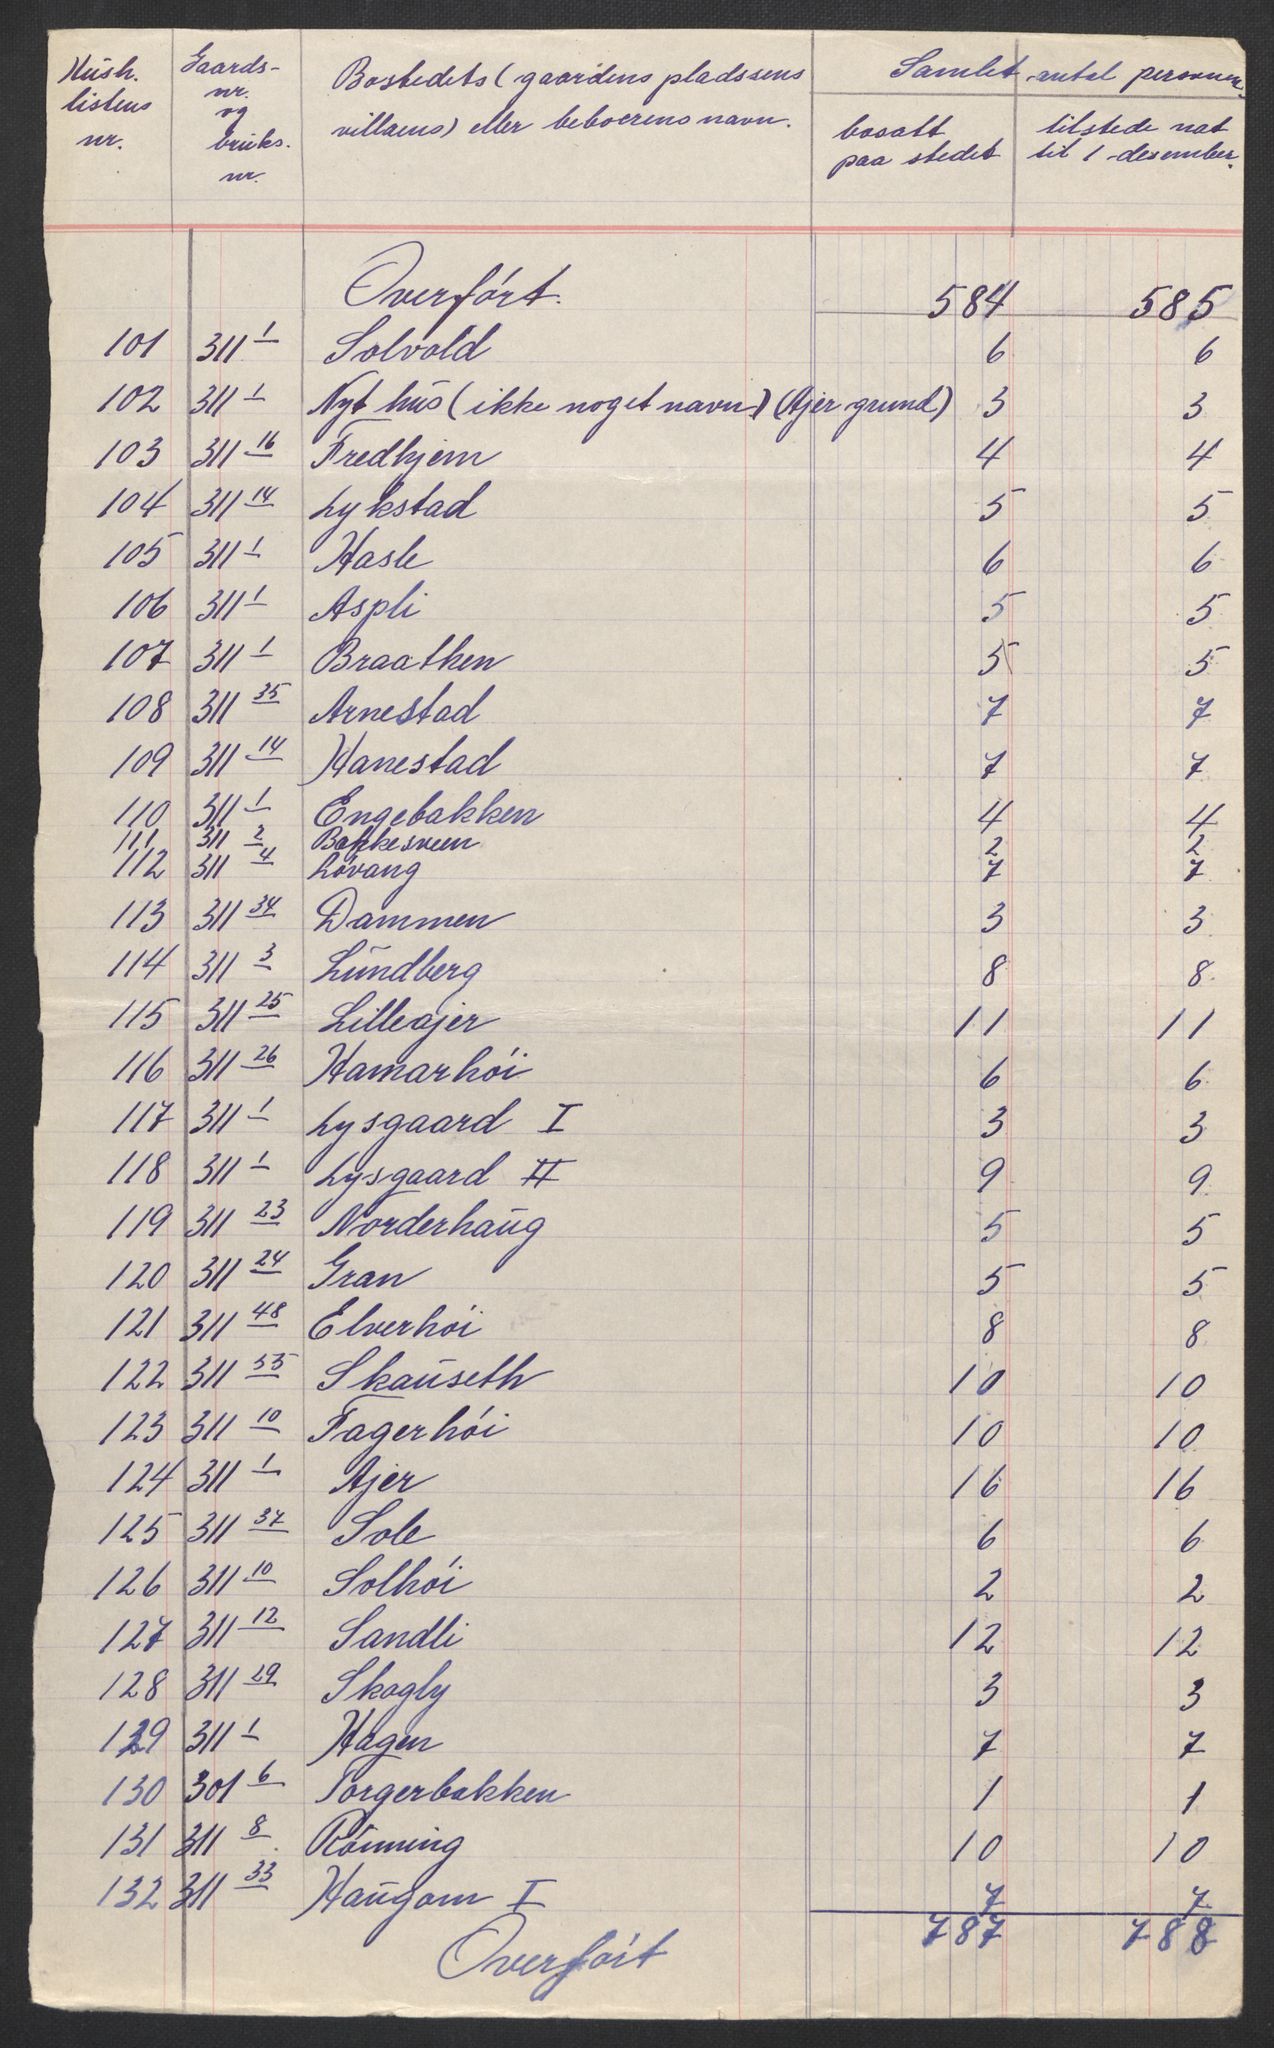 Hush. listens nr. | Gaards- nr. og bruks. nr. | Bostedets (gaardens pladssens villaens) eller beboerens navn. | Samlet antal personer.
bosatt paa stedet | tilstede nat til 1 desember.
Overført. 584 585
101 311 1 Solvold 6 6
102 311 1 Nyt hus (ikke noget navn) (Ajer grund) 3 3
103 311 16 Fredhjem 4 4
104 311 14 Lykstad 5 5
105 311 1 Hasle 6 6
106 311 1 Aspli 5 5
107 311 1 Braathen 5 5
108 311 35 Arnestad 7 7
109 311 14 Hanestad 7 7
110 311 1 Engebakken 4 4
111 311 2 Bakkesveen 2 2
112 311 4 Løvang 7 7
113 311 34 Dammen 3 3
114 311 3 Lundberg 8 8
115 311 25 Lilleajer 11 11
116 311 26 Hamarhøi 6 6
117 311 1 Lysgaard I 3 3
118 311 1 Lysgaard II 9 9
119 311 23 Norderhaug 5 5
120 311 24 Gran 5 5
121 311 48 Elverhøi 8 8
122 311 55 Skauseth 10 10
123 311 10 Fagerhøi 10 10
124 311 1 Ajer 16 16
125 311 37 Sole 6 6
126 311 10 Solhøi 2 2
127 311 12 Sandli 12 12
128 311 29 Skogly 3 3
129 311 1 Hagen 7 7
130 301 6 Torgerbakken 1 1
131 311 8 Rønning 10 10
132 311 33 Haugom I 7 7
787 788
Overført